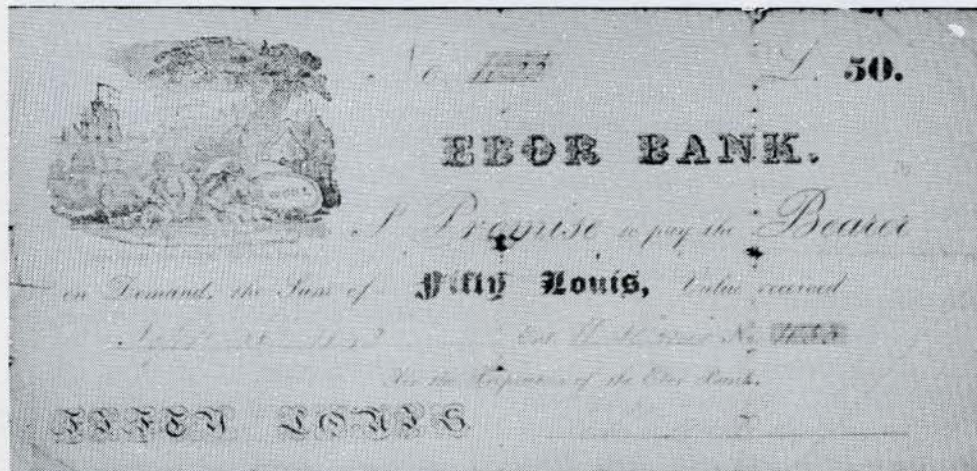 No L. 50.
EBOR BANK.
I Promise to pay the Bearer
on Demand, the Sum of Fifty Louis, Value received
Ent. No
For the Proprietors of the Ebor Bank.
FIFTY LOUIS